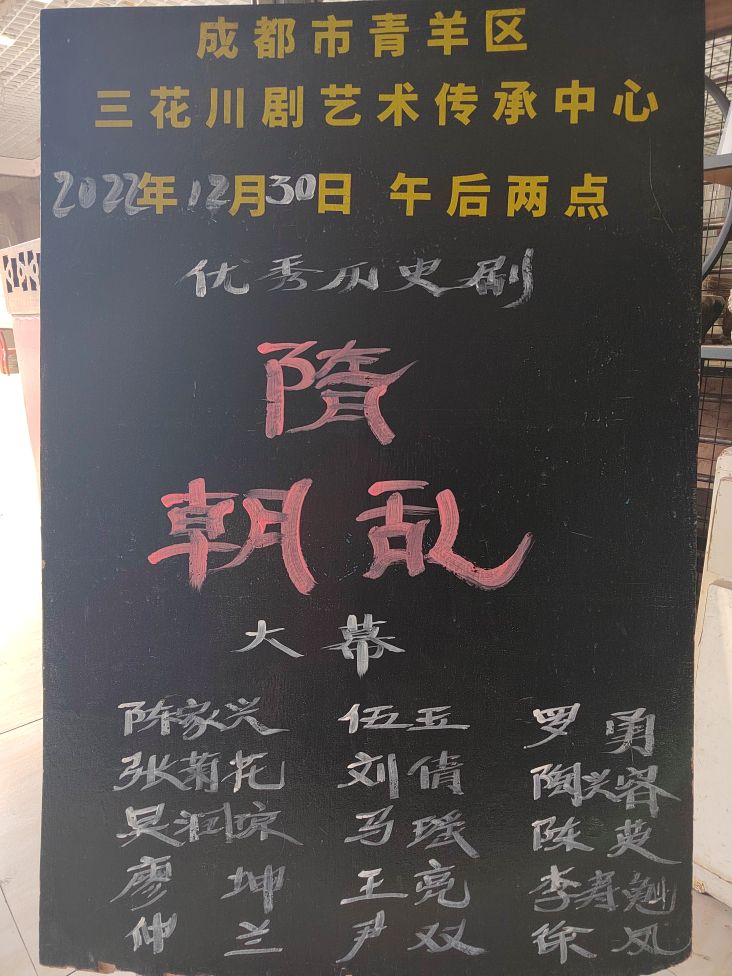 成都市青羊区
三花川剧艺术传承中心
2022年12月30日 午后两点
优秀历史剧
隋
朝乱
大幕
陈家兴 伍玉 罗勇
张菊花 刘倩 陶兴容
吴润琼 马瑶 陈英
廖坤 王亮 李寿勉
仲兰 尹双 徐凤